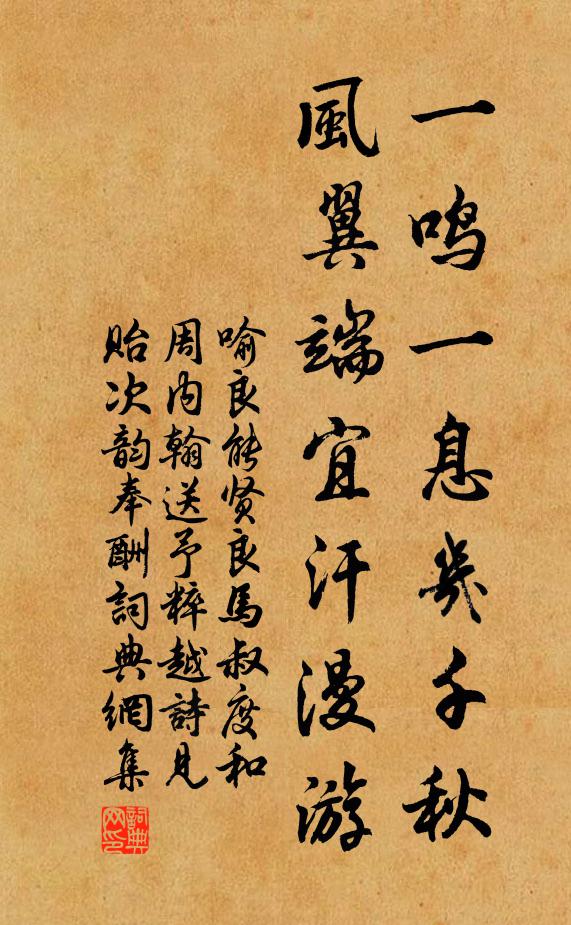 一鸣一息幾千秋
風翼端宜汗漫游
喻良能贤良馬叔度和
周内翰送予粹越詩見
貽次韵奉酬詞典網集
詞典网印